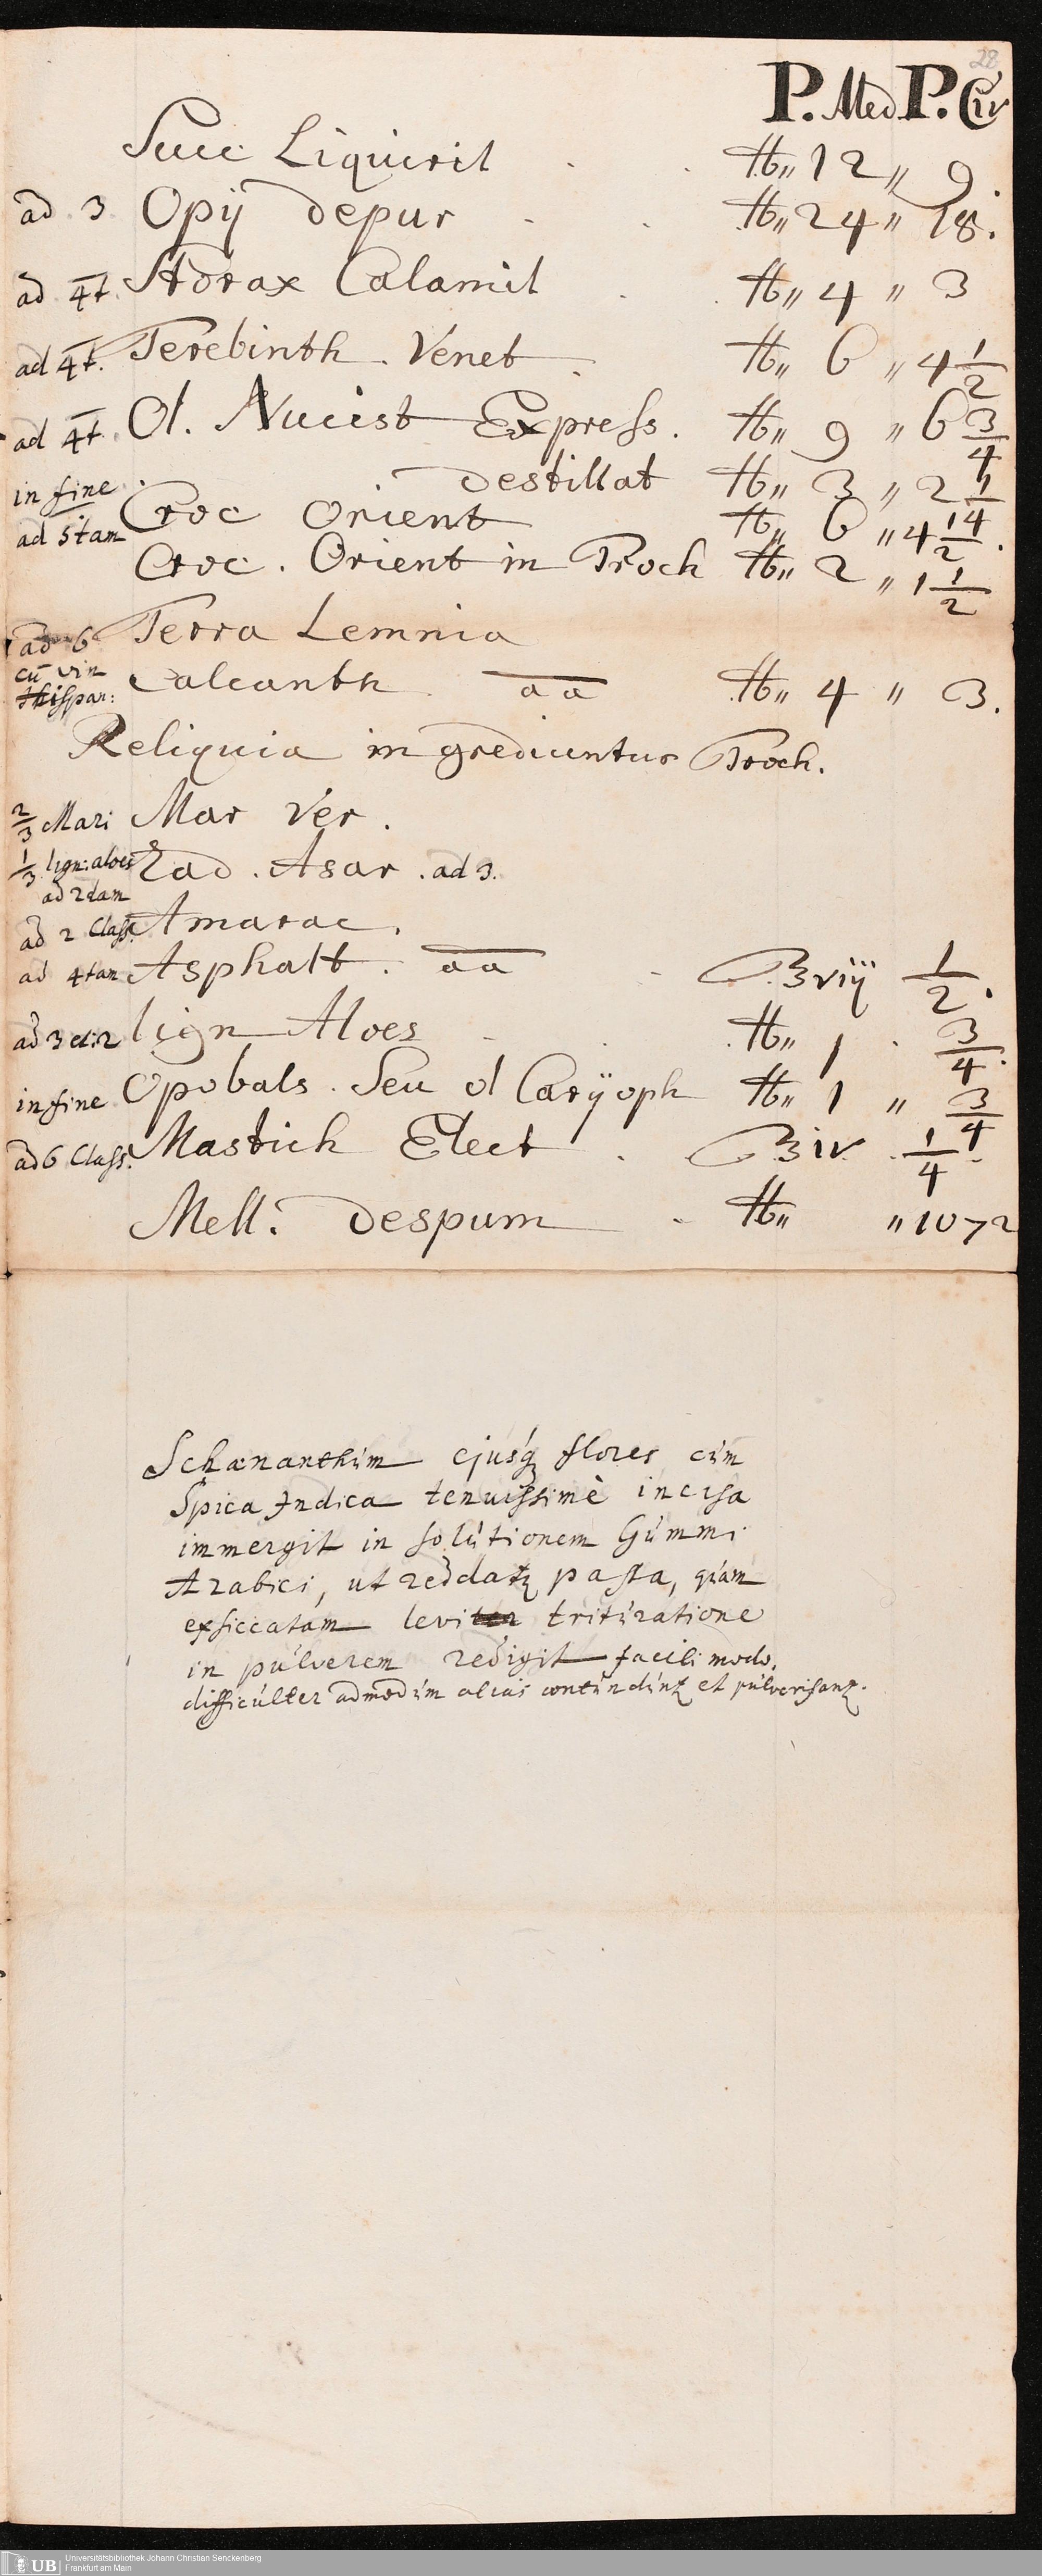 28
P. Med P. Civ
Succ Liquirit ℔„ 12 „ 9.
ad 3 Opij depur ℔„ 24 „ 18.
ad 4t. Storax Calamit ℔„ 4 „ 3
ad 4t. Terebinth. Venet ℔„ 6 „ 4 1/2
ad 4t. Ol. Nucist Express. ℔„ 9 „ 6 3/4
in fine destillat ℔„ 3 „ 2 1/4
ad 5tam Croc Orient ℔„ 6 „ 4 1/2.
Croc. Orient in Troch ℔„ 2 „ 1 1/2
ad 6 Terra Lemnia
cū vin
hispan: Calcanth aa ℔„ 4 „ 3.
Reliquia in grediuntur Troch.
2/3 Mari Mar Ver.
1/3 lign: aloes Rad. Asar. ad 3.
ad 2dam
ad 2 Class. Amarac.
ad 4tan Asphalt. aa ℥viij 1/2.
ad 3 et: 2 lign Aloes ℔„ 1. 3/4.
in fine Opobals. Seu ol Carÿoph ℔„ 1 „ 3/4
ad 6 Class. Mastich Elect. ℥iv. 1/4.
Mell. despum ℔„ „ 1072
Schœnanthum ejusq flores cum
Spica Indica tenuissimè incisa
immergit in solutionem Gummi
Arabici, ut reddatɋ pasta, quam
exsiccatam levi trituratione
in pulverem redigit facili modo,
difficulter admodum alias contundunɋ et pulverisanɋ.
UB Universitätsbibliothek Johann Christian Senckenberg
Frankfurt am Main